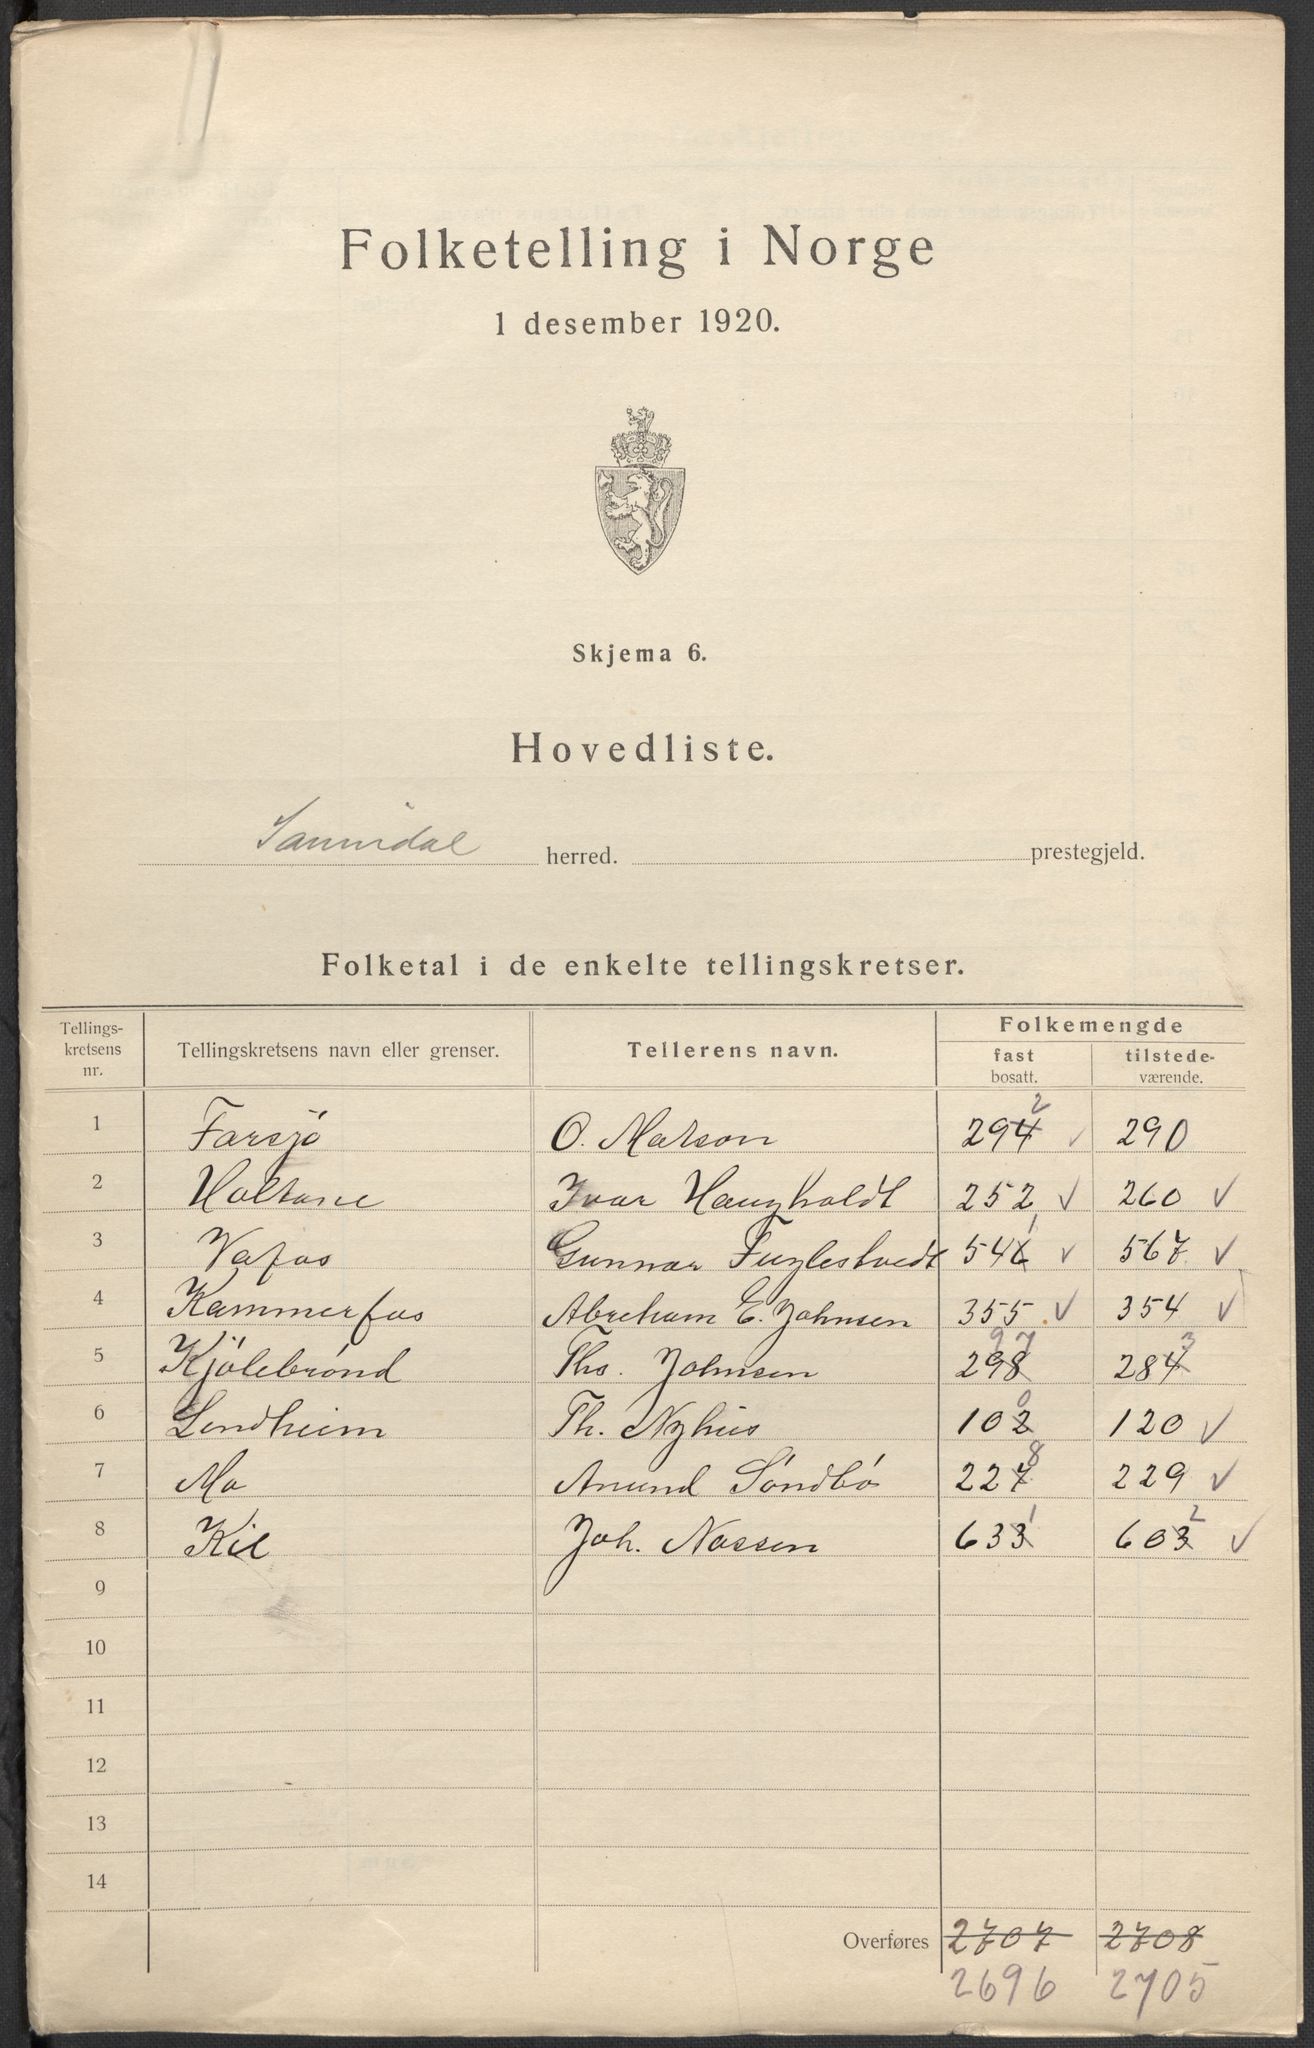 Folketelling i Norge
1 desember 1920.
Skjema 6.
Hovedliste.
Sannidal herred. prestegjeld.
Folketal i de enkelte tellingskretser.
Tellings-kretsens nr. Tellingskretsens navn eller grenser. Tellerens navn. Folkemengde
fast bosatt. tilstede-værende.
1 Farsjø O. Matson 294 2 ✓ 290
2 Holtane Ivar Haugholdt 252 ✓ 260 ✓
3 Vafos Gunnar Fuglestvedt 546 1 ✓ 567 ✓
4 Kammerfos Abraham E. Johnsen 355 ✓ 354 ✓
5 Kjölebrönd Ths. Johnsen 298 97 284 3
6 Lindheim Th. Nyhus 102 0 120 ✓
7 Mo Anund Söndbö 227 8 229 ✓
8 Kil Joh. Nassen 633 1 603 2 ✓
9
10
11
12
13
14
Overføres 2707 2708
2696 2705